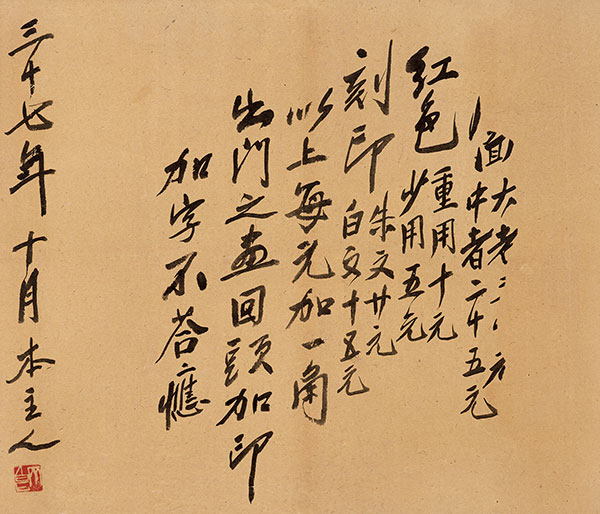 面大者元
中者二十五元
紅色
重用十元
少用五元
刻印
朱文廿元
白文十五元
以上每元加一角
出門之畫回頭加印
加字不答應
三十七年十月本主人